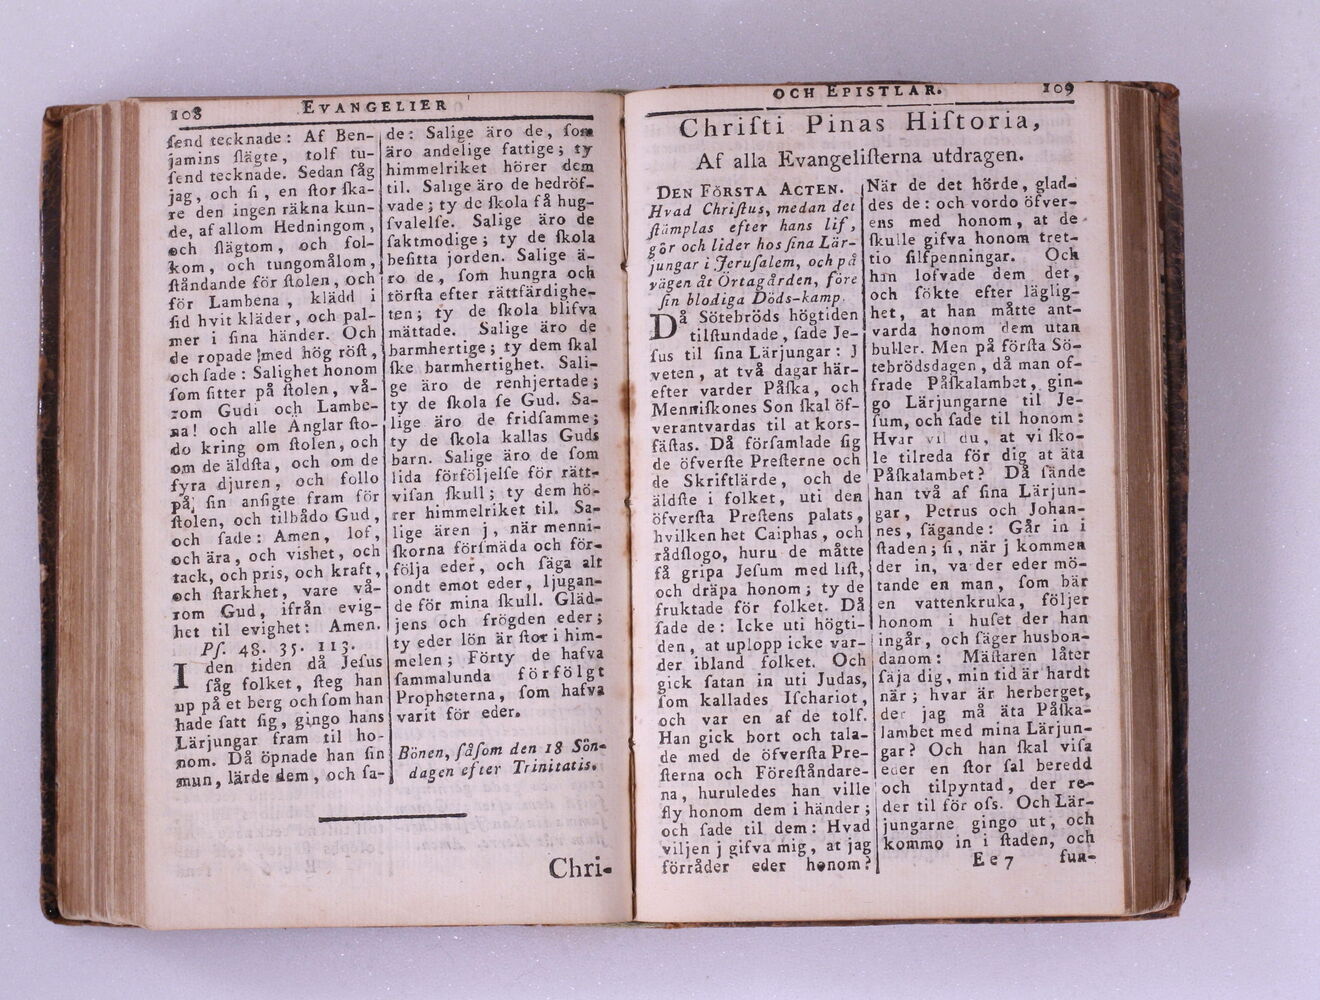 108
EVANGELIER
ſend tecknade: Af Ben-
jamins ſlägte, tolf tu-
ſend tecknade. Sedan ſåg
jag, och ſi, en ſtor ſka-
re den ingen räkna kun-
de, af allom Hedningom,
och ſlägtom, och fol-
kom, och tungomålom,
ſtåndande för ſtolen, och
för Lambena, klädd i
ſid hvit kläder, och pal-
mer i ſina händer. Och
de ropade med hög röſt,
och ſade: Salighet honom
ſom ſitter på ſtolen, vå-
rom Gudi och Lambe-
na! och alle Änglar ſto-
do kring om ſtolen, och
om de äldſta, och om de
fyra djuren, och follo
på ſin anſigte fram för
ſtolen, och tilbådo Gud,
och ſade: Amen, lof,
och ära, och vishet, och
tack, och pris, och kraft,
och ſtarkhet, vare vå-
rom Gud, ifrån evig-
het til evighet: Amen.
Pſ. 48. 35. 113.
I den tiden då Jeſus
ſåg folket, ſteg han
up på et berg och ſom han
hade ſatt ſig, gingo hans
Lärjungar fram til ho-
nom. Då öpnade han ſin
mun, lärde dem, och ſa-
de: Salige äro de, ſom
äro andelige fattige; ty
himmelriket hörer dem
til. Salige äro de bedröf-
vade; ty de ſkola få hug-
ſvalelſe. Salige äro de
ſaktmodige; ty de ſkola
beſitta jorden. Salige ä-
ro de, ſom hungra och
törſta efter rättfärdighe-
ten; ty de ſkola blifva
mättade. Salige äro de
barmhertige; ty dem ſkal
ſke barmhertighet. Sali-
ge äro de renhjertade;
ty de ſkola ſe Gud. Sa-
lige äro de fridſamme;
ty de ſkola kallas Guds
barn. Salige äro de ſom
lida förföljelſe för rätt-
viſan ſkull; ty dem hö-
rer himmelriket til. Sa-
lige ären j, när menni-
ſkorna förſmäda och för-
följa eder, och ſäga alt
ondt emot eder, ljugan-
de för mina ſkull. Gläd-
jens och frögden eder;
ty eder lön är ſtor i him-
melen; Förty de hafva
ſammalunda förfölgt
Propheterna, ſom hafva
varit för eder.
Bönen, ſåſom den 18 Sön-
dagen efter Trinitatis.
Chri-
OCH EPISTLAR.
109
Chriſti Pinas Hiſtoria,
Af alla Evangeliſterna utdragen.
DEN FÖRSTA ACTEN.
Hvad Chriſtus, medan det
ſtämplas efter hans lif,
gör och lider hos ſina Lär-
jungar i Jeruſalem, och på
vägen åt Örtagården, före
ſin blodiga Döds-kamp.
Då Sötebröds högtiden
tilſtundade, ſade Je-
ſus til ſina Lärjungar: J
veten, at två dagar här-
efter varder Påſka, och
Menniſkones Son ſkal öf-
verantvardas til at kors-
fäſtas. Då förſamlade ſig
de öfverſte Preſterne och
de Skriftlärde, och de
äldſte i folket, uti den
öfverſta Preſtens palats,
hvilken het Caiphas, och
rådſlogo, huru de måtte
få gripa Jeſum med liſt,
och dräpa honom; ty de
fruktade för folket. Då
ſade de: Icke uti högti-
den, at uplopp icke var-
der ibland folket. Och
gick ſatan in uti Judas,
ſom kallades Iſchariot,
och var en af de tolf.
Han gick bort och tala-
de med de öfverſta Pre-
ſterna och Föreſtåndare-
na, huruledes han ville
fly honom dem i händer;
och ſade til dem: Hvad
viljen j gifva mig, at jag
förråder eder honom?
När de det hörde, glad-
des de: och vordo öfver-
ens med honom, at de
ſkulle gifva honom tret-
tio ſilfpenningar. Och
han lofvade dem det,
och ſökte efter läglig-
het, at han måtte ant-
varda honom dem utan
buller. Men på förſta Sö-
tebrödsdagen, då man of-
frade Påſkalambet, gin-
go Lärjungarne til Je-
ſum, och ſade til honom:
Hvar vil du, at vi ſko-
le tilreda för dig at äta
Påſkalambet? Då ſände
han två af ſina Lärjun-
gar, Petrus och Johan-
nes, ſägande: Går in i
ſtaden; ſi, när j kommen
der in, varder eder mö-
tande en man, ſom bär
en vattenkruka, följer
honom i huſet der han
ingår, och ſäger husbon-
danom: Mäſtaren låter
ſäja dig, min tid är hardt
när; hvar är herberget,
der jag må äta Påſka-
lambet med mina Lärjun-
gar? Och han ſkal viſa
eder en ſtor ſal beredd
och tilpyntad, der re-
der til för oſs. Och Lär-
jungarne gingo ut, och
kommo in i ſtaden, och
E e 7
fun-